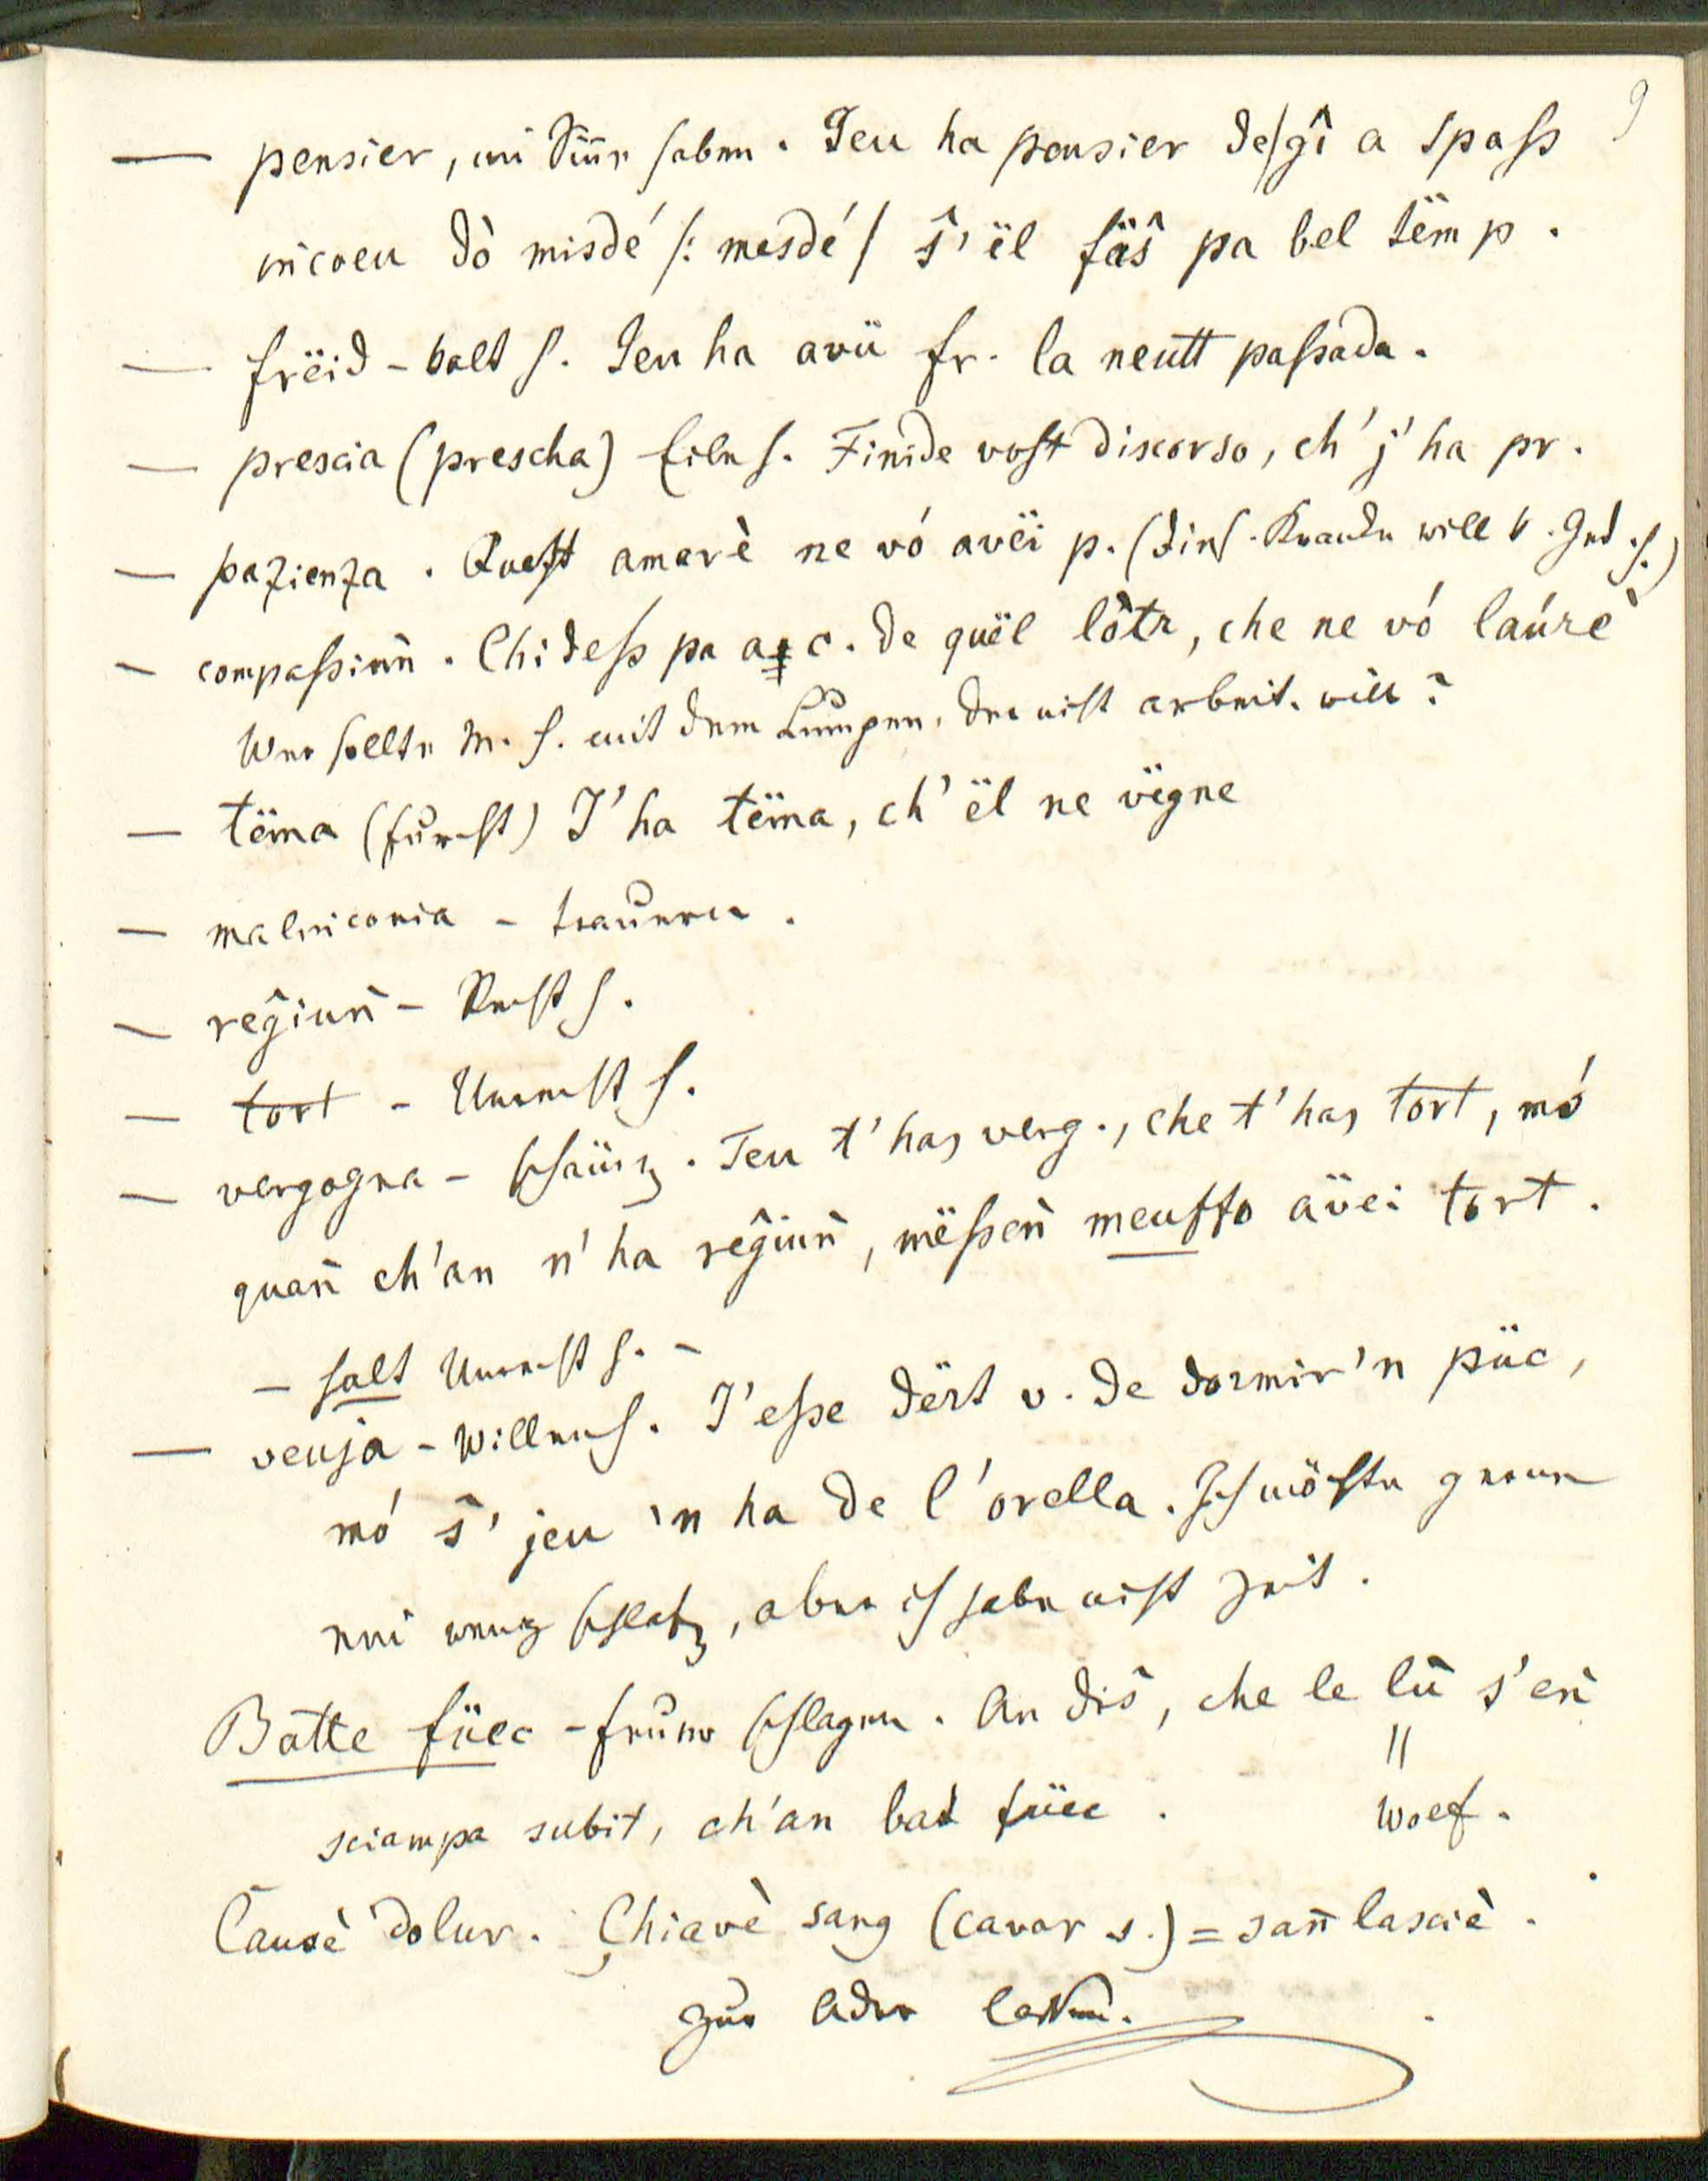 9
— pensier, im Sinn haben. Jeu ha pensier de/gî a spaſs
incoeu dò misdé /: mesdé / ŝ'ël fäŝ pa bel tëmp.
— frëid - kalt h. Jeu ha avü fr. la neutt paſsada.
— prescia (prescha) Eile h. Finide voſt discorso, ch'j'ha pr.
— pazienza. Queſt amarè ne vó avëi p. (Dies. Kranke will k. Ged. h.)
— compaſsiuñ. Chi deſs pa a c. de quël lòtr, che ne vó laúrè
Wer sollte M. h. mit dem Lumpen, der nicht arbeit. will?
— tëma (furcht) J'ha tëma, ch'ël ne vëgne
— malinconia - trauern.
— reĝiuñ - Recht h.
— tort - Unrecht h.
— vergogna - schäm̃. Teu t'has verg., che t'has tort, mó
quañ ch'an n'ha reĝiuñ, mëſseñ meuſſo avëi tort.
— halt Unrecht h. —
— veuja - Willen h. J'eſse dërt v. de dormir'n püc,
mó ŝ'jeu 'n ha de l'orella. Ich möchte gerne
ein wenig schlafen, aber ich habe nicht Zeit.
Batte füec - feuer schlagen. An diŝ, che le lü s'eñ
=
sciampa subit, ch'an bat füec. Wolf.
Causè dolur. Chiavè sang (cavar s.) = sañ lasciè.
zur Ader lassen.